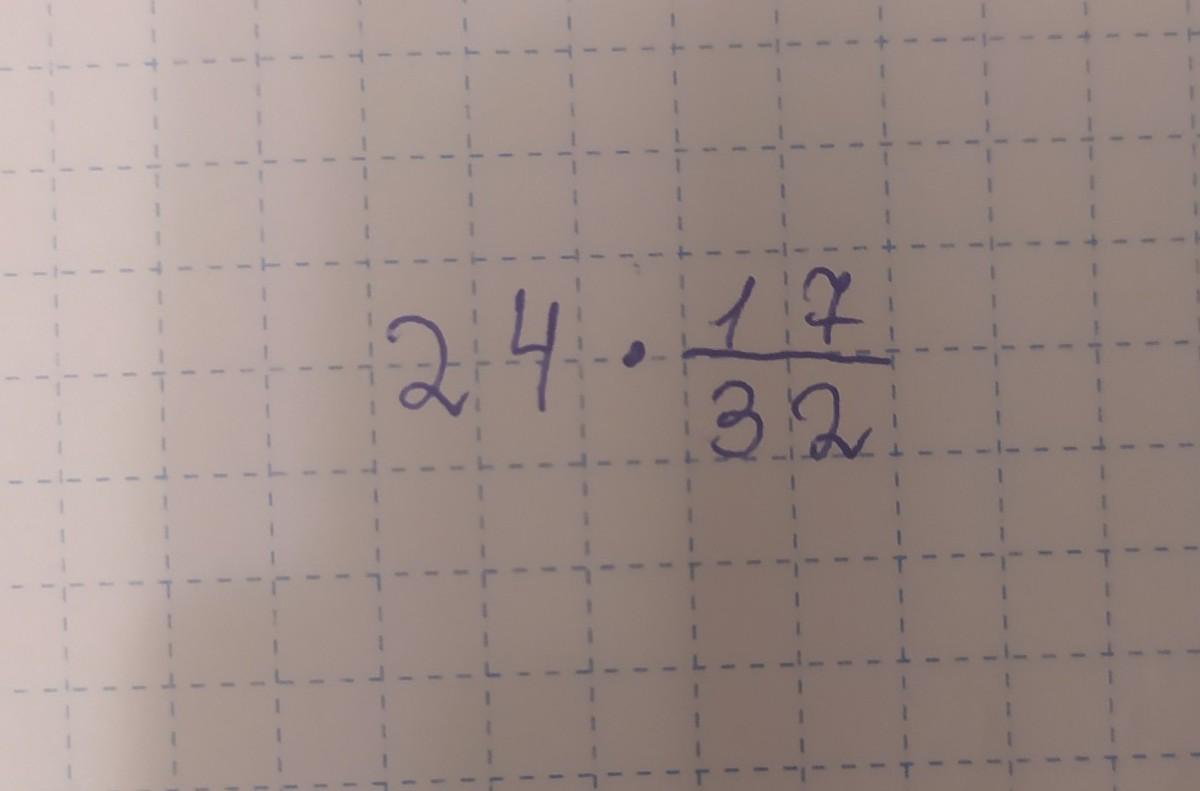 24 · 17/32